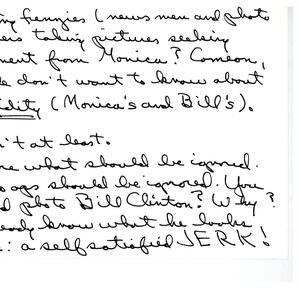 frenzies (news men and photo
taking pictures seeking
ment from Monica? Come on,
don't want to know about
idity (Monica's and Bill's).
't at least.
what should be ignored.
ago should be ignored. You
d photo Bill Clinton? Why?
eady know what he looks
: a self satisfied JERK!